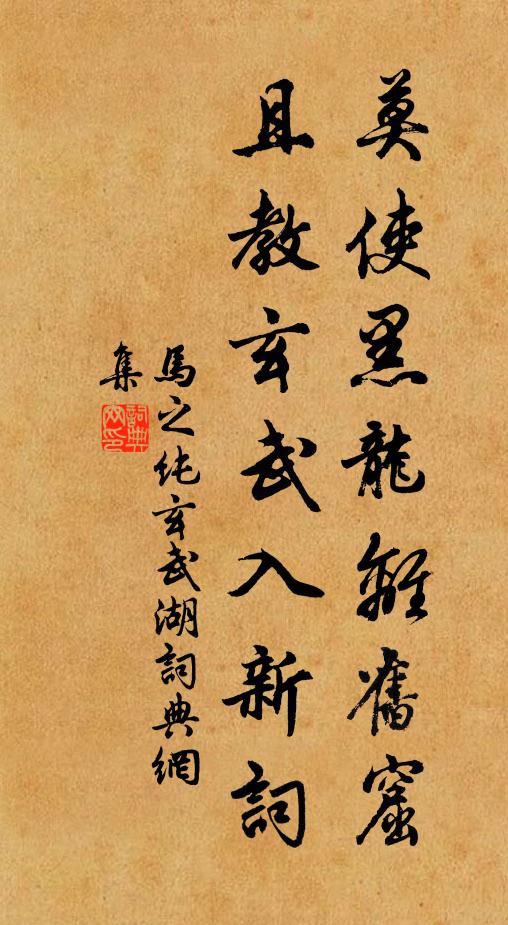 莫使黑龍離舊窟
且教玄武入新詞
馬之純玄武湖詞典網
集
詞典網印